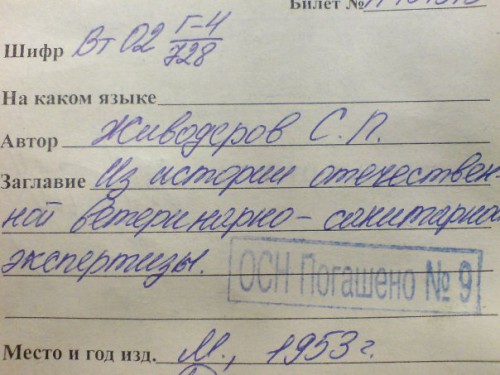 Билет №
Шифр Вт 02 Г-4/728
На каком языке
Автор Живодеров С. П.
Заглавие Из истории отечествен-
ной ветеринарно-санитарной
экспертизы.
ОСН Погашено № 9
Место и год изд. М., 1953 г.